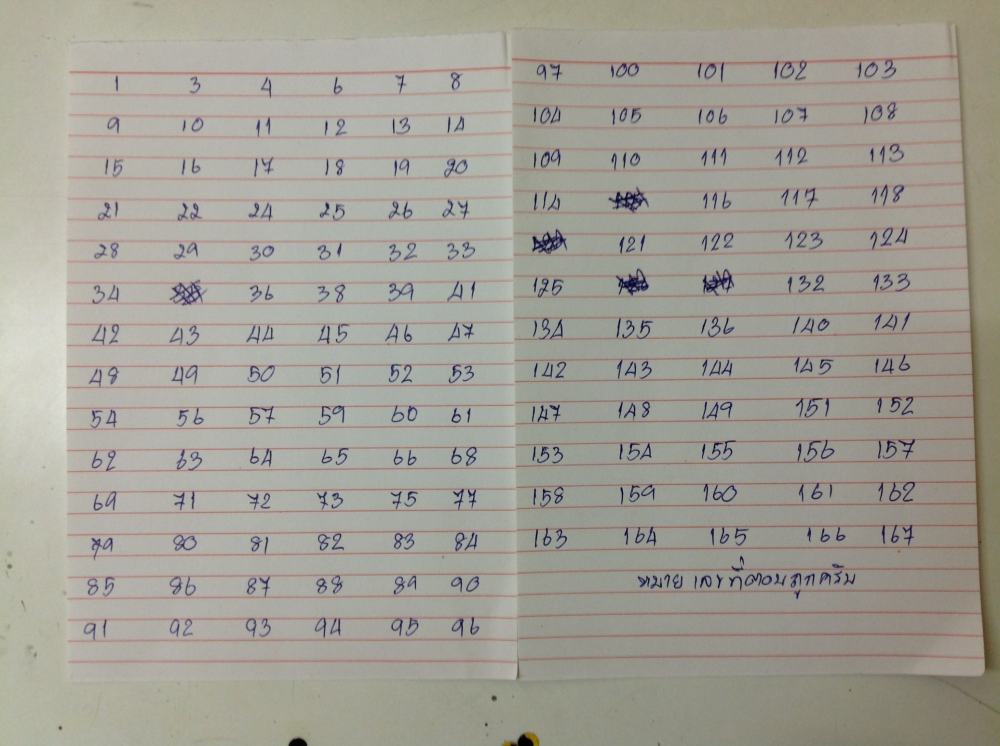 1 3 4 6 7 8
9 10 11 12 13 14
15 16 17 18 19 20
21 22 24 25 26 27
28 29 30 31 32 33
34 36 38 39 41
42 43 44 45 46 47
48 49 50 51 52 53
54 56 57 59 60 61
62 63 64 65 66 68
69 71 72 73 75 77
79 80 81 82 83 84
85 86 87 88 89 90
91 92 93 94 95 96
97 100 101 102 103
104 105 106 107 108
109 110 111 112 113
114 116 117 118
121 122 123 124
125 132 133
134 135 136 140 141
142 143 144 145 146
147 148 149 151 152
153 154 155 156 157
158 159 160 161 162
163 164 165 166 167
หมายเลขที่ตอบถูกครับ